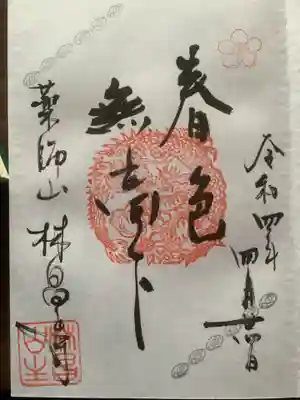 令和四年四月
春色
無高下
薬師山 林昌寺